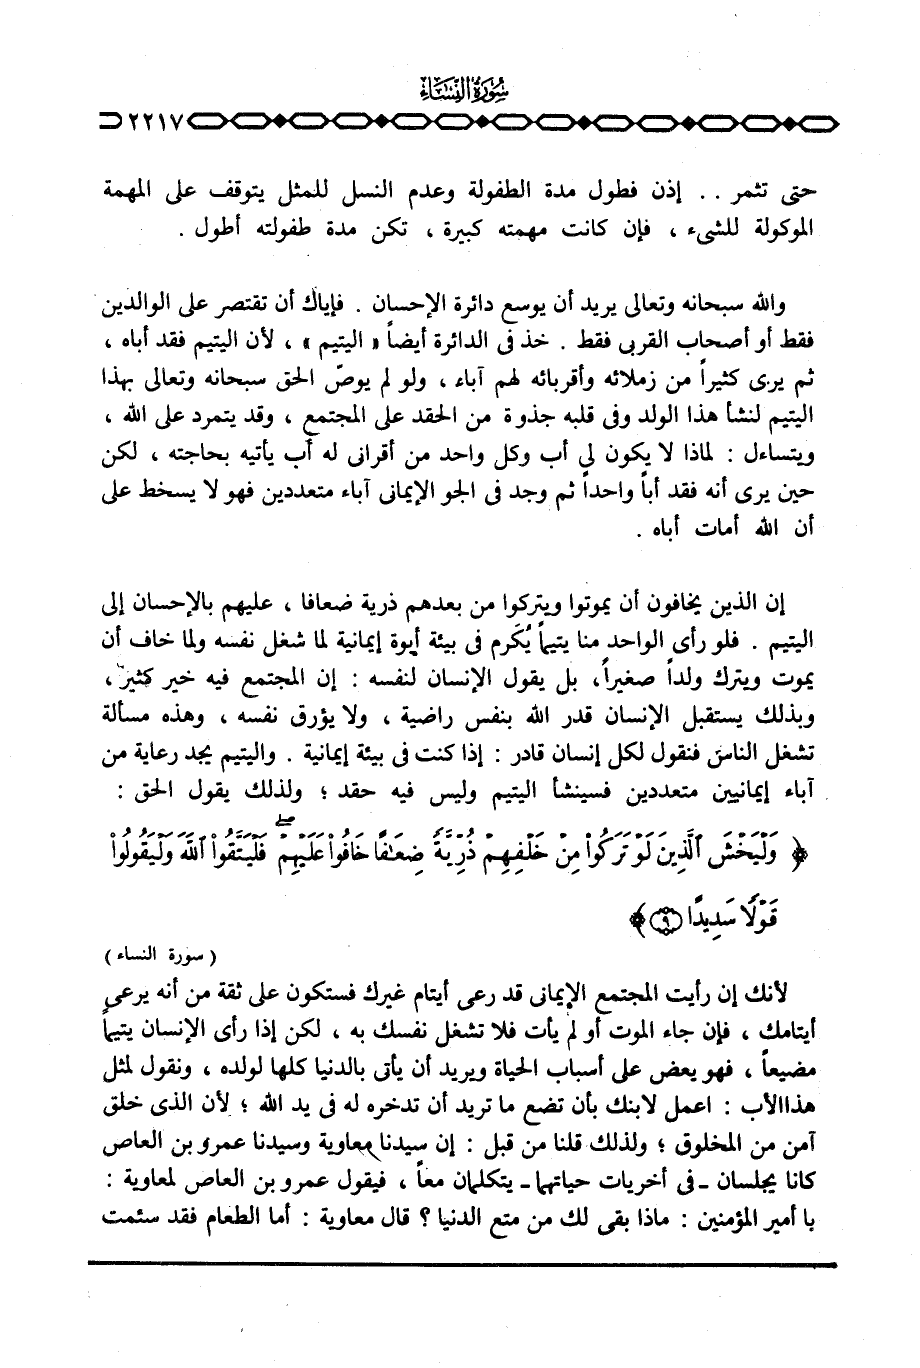 سُورَةُ النِّسَاءِ
٢٢١٧
حتى تثمر .. إذن فطول مدة الطفولة وعدم النسل للمثل يتوقف على المهمة
الموكولة للشىء ، فإن كانت مهمته كبيرة ، تكن مدة طفولته أطول .
والله سبحانه وتعالى يريد أن يوسع دائرة الإحسان . فإياك أن تقتصر على الوالدين
فقط أو أصحاب القربى فقط . خذ فى الدائرة أيضاً « اليتيم » ، لأن اليتيم فقد أباه ،
ثم يرى كثيراً من زملائه وأقربائه لهم آباء ، ولو لم يوصّ الحق سبحانه وتعالى بهذا
اليتيم لنشأ هذا الولد وفى قلبه جذوة من الحقد على المجتمع ، وقد يتمرد على الله ،
ويتساءل : لماذا لا يكون لى أب وكل واحد من أقرانى له أب يأتيه بحاجته ، لكن
حين يرى أنه فقد أباً واحداً ثم وجد فى الجو الإيمانى آباء متعددين فهو لا يسخط على
أن الله أمات أباه .
إن الذين يخافون أن يموتوا ويتركوا من بعدهم ذرية ضعافا ، عليهم بالإحسان إلى
اليتيم . فلو رأى الواحد منا يتيماً يُكَرم فى بيئة أبوة إيمانية لما شغل نفسه ولما خاف أن
يموت ويترك ولداً صغيراً، بل يقول الإنسان لنفسه : إن المجتمع فيه خير كثير ،
وبذلك يستقبل الإنسان قدر الله بنفس راضية ، ولا يؤرق نفسه ، وهذه مسألة
تشغل الناس فنقول لكل إنسان قادر : إذا كنت فى بيئة إيمانية . واليتيم يجد رعاية من
آباء إيمانيين متعددين فسينشأ اليتيم وليس فيه حقد ؛ ولذلك يقول الحق :
﴿ وَلْيَخْشَ ٱلَّذِينَ لَوْ تَرَكُوا۟ مِنْ خَلْفِهِمْ ذُرِّيَّةً ضِعَـٰفًا خَافُوا۟ عَلَيْهِمْ ۖ فَلْيَتَّقُوا۟ ٱللَّهَ وَلْيَقُولُوا۟
قَوْلًا سَدِيدًا ٩ ﴾
( سورة النساء )
لأنك إن رأيت المجتمع الإيمانى قد رعى أيتام غيرك فستكون على ثقة من أنه يرعى
أيتامك ، فإن جاء الموت أو لم يأت فلا تشغل نفسك به ، لكن إذا رأى الإنسان يتيماً
مضيعاً ، فهو يعض على أسباب الحياة ويريد أن يأتى بالدنيا كلها لولده ، ونقول لمثل
هذاالأب : اعمل لابنك بأن تضع ما تريد أن تدخره له فى يد الله ؛ لأن الذى خلق
آمن من المخلوق ؛ ولذلك قلنا من قبل : إن سيدنا معاوية وسيدنا عمرو بن العاص
كانا يجلسان ـ فى أخريات حياتهما ـ يتكلمان معاً ، فيقول عمرو بن العاص لمعاوية :
يا أمير المؤمنين : ماذا بقى لك من متع الدنيا ؟ قال معاوية : أما الطعام فقد سئمت